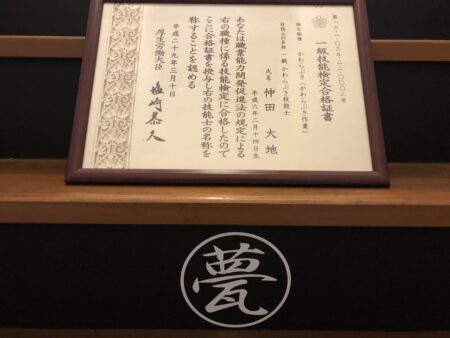 第一八-一-〇五九-一二-〇〇〇三号
一級技能検定合格証書
検定職種 かわらぶき(かわらぶき作業)
技能士の名称 一級かわらぶき技能士
氏名 仲田大地
平成六年二月十四日生
あなたは職業能力開発促進法の規定による
右の職種に係る技能検定に合格したので
ここに合格証書を授与し右の技能士の名称を
称することを認める
平成二十九年三月十日
厚生労働大臣 塩崎恭久
甍